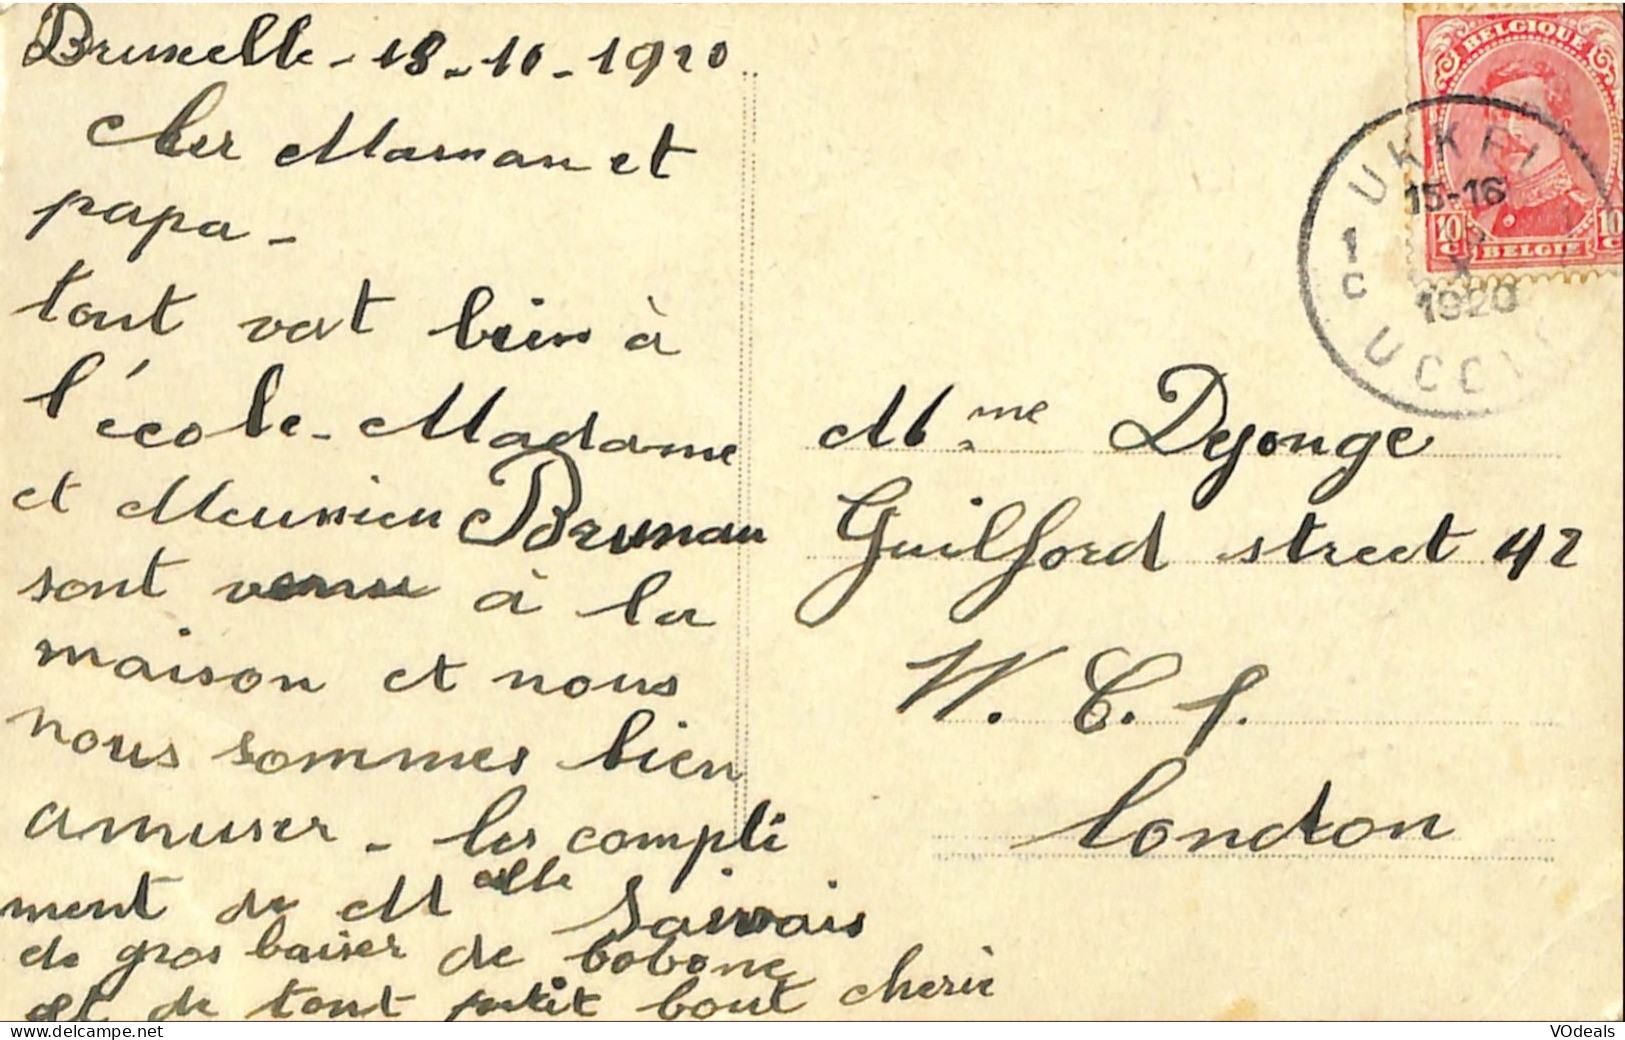 Bruxelle - 18 - 10 - 1920
cher Maman et
papa -
tout vat bien à
l'école - Madame
et Meunieu Brunau
sont venu à la
maison et nous
nous sommes bien
amuser - les compli
ment de Melle
de gros baiser de bobone
et de tout petit bout cherie
BELGIQUE
10 C 10 C
BELGIE
UKKEL
15-16
1 C
X
1920
UCCLE
Mme Dejonge
Guilford street 42
W. C. 1.
London
VOdeals